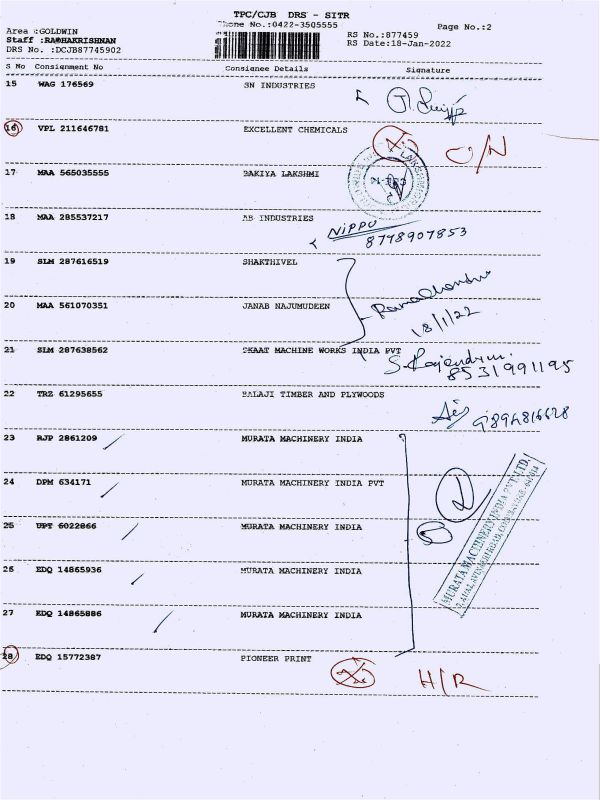 TPC/CJB DRS - SITR
Phone No:0422-3505555
Page No.:2
Area :GOLDWIN
Staff :RADHAKRISHNAN
DRS No. :DCJB87745902
RS No.:877459
RS Date:18-Jan-2022
S No Consignment No Consignee Details Signature
15 WAG 176569 SN INDUSTRIES
16 VPL 211646781 EXCELLENT CHEMICALS
O/N
17 MAA 565035555 BAKIYA LAKSHMI
18 MAA 285537217 AB INDUSTRIES
NIPPO
8778907853
19 SLM 287616519 SHAKTHIVEL
20 MAA 561070351 JANAB NAJUMUDEEN
Ramachandran
18/1/22
21 SLM 287638562 SKAAT MACHINE WORKS INDIA PVT
S. Rajendran.
8531991195
22 TRZ 61295655 BALAJI TIMBER AND PLYWOODS
9894816628
23 RJP 2861209 MURATA MACHINERY INDIA
24 DPM 634171 MURATA MACHINERY INDIA PVT
25 UPT 6022866 MURATA MACHINERY INDIA
26 EDQ 14865936 MURATA MACHINERY INDIA
27 EDQ 14865886 MURATA MACHINERY INDIA
MURATA MACHINERY INDIA PVT. LTD.
28 EDQ 15772387 PIONEER PRINT
H/R